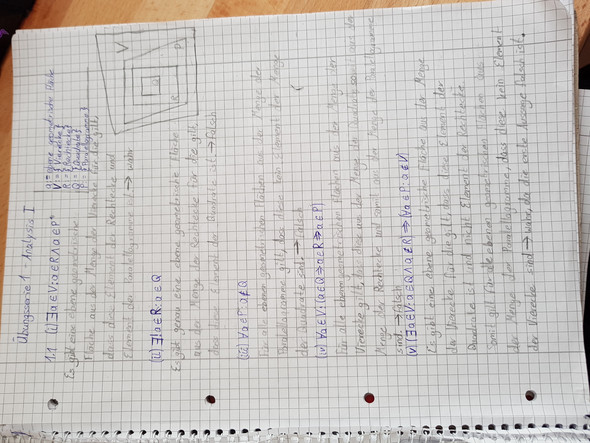 Übungsserie 1 - Analysis I
a = ebene geometrische Fläche
V = {Vierecke}
R = {Rechtecke}
Q = {Quadrate}
P = {Parallelogramme}
V
P
R
Q
1.1 (i) ∃a∈V: a∈R∧a∈P
Es gibt eine ebene geometrische
Fläche aus der Menge der Vierecke für die gilt,
dass diese Element der Rechtecke und
Element der Parallelogramme ist → wahr
(ii) ∃!a∈R: a∈Q
Es gibt genau eine ebene geometrische Fläche
aus der Menge der Rechtecke für die gilt,
dass diese Element der Quadrate ist → falsch
(iii) ∀a∈P: a∉Q
Für alle ebenen geometrischen Flächen aus der Menge der
Parallelogramme gilt, dass diese kein Element der Menge
der Quadrate sind. → falsch
(iv) ∀a∈V: (a∈Q ⇒ a∈R ⇒ a∈P)
Für alle ebenen geometrischen Flächen aus der Menge der
Vierecke gilt, dass diese aus der Menge der Quadrate aus der
Menge der Rechtecke und somit aus der Menge der Parallelogramme
sind. → falsch
(v) (∃a∈V: a∈Q∧a∉R) ⇒ (∀a∈P: a∉V)
Es gibt eine ebene geometrische Fläche aus der Menge
der Vierecke für die gilt, dass diese Element der
Quadrate ist und nicht Element der Rechtecke
somit gilt für alle ebenen geometrischen Flächen aus
der Menge der Parallelogramme, dass diese kein Element
der Vierecke sind → wahr, da die erste Aussage falsch ist.